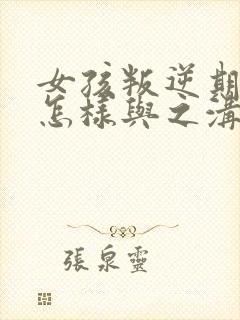 女孩叛逆期
怎樣與之溝
張泉靈